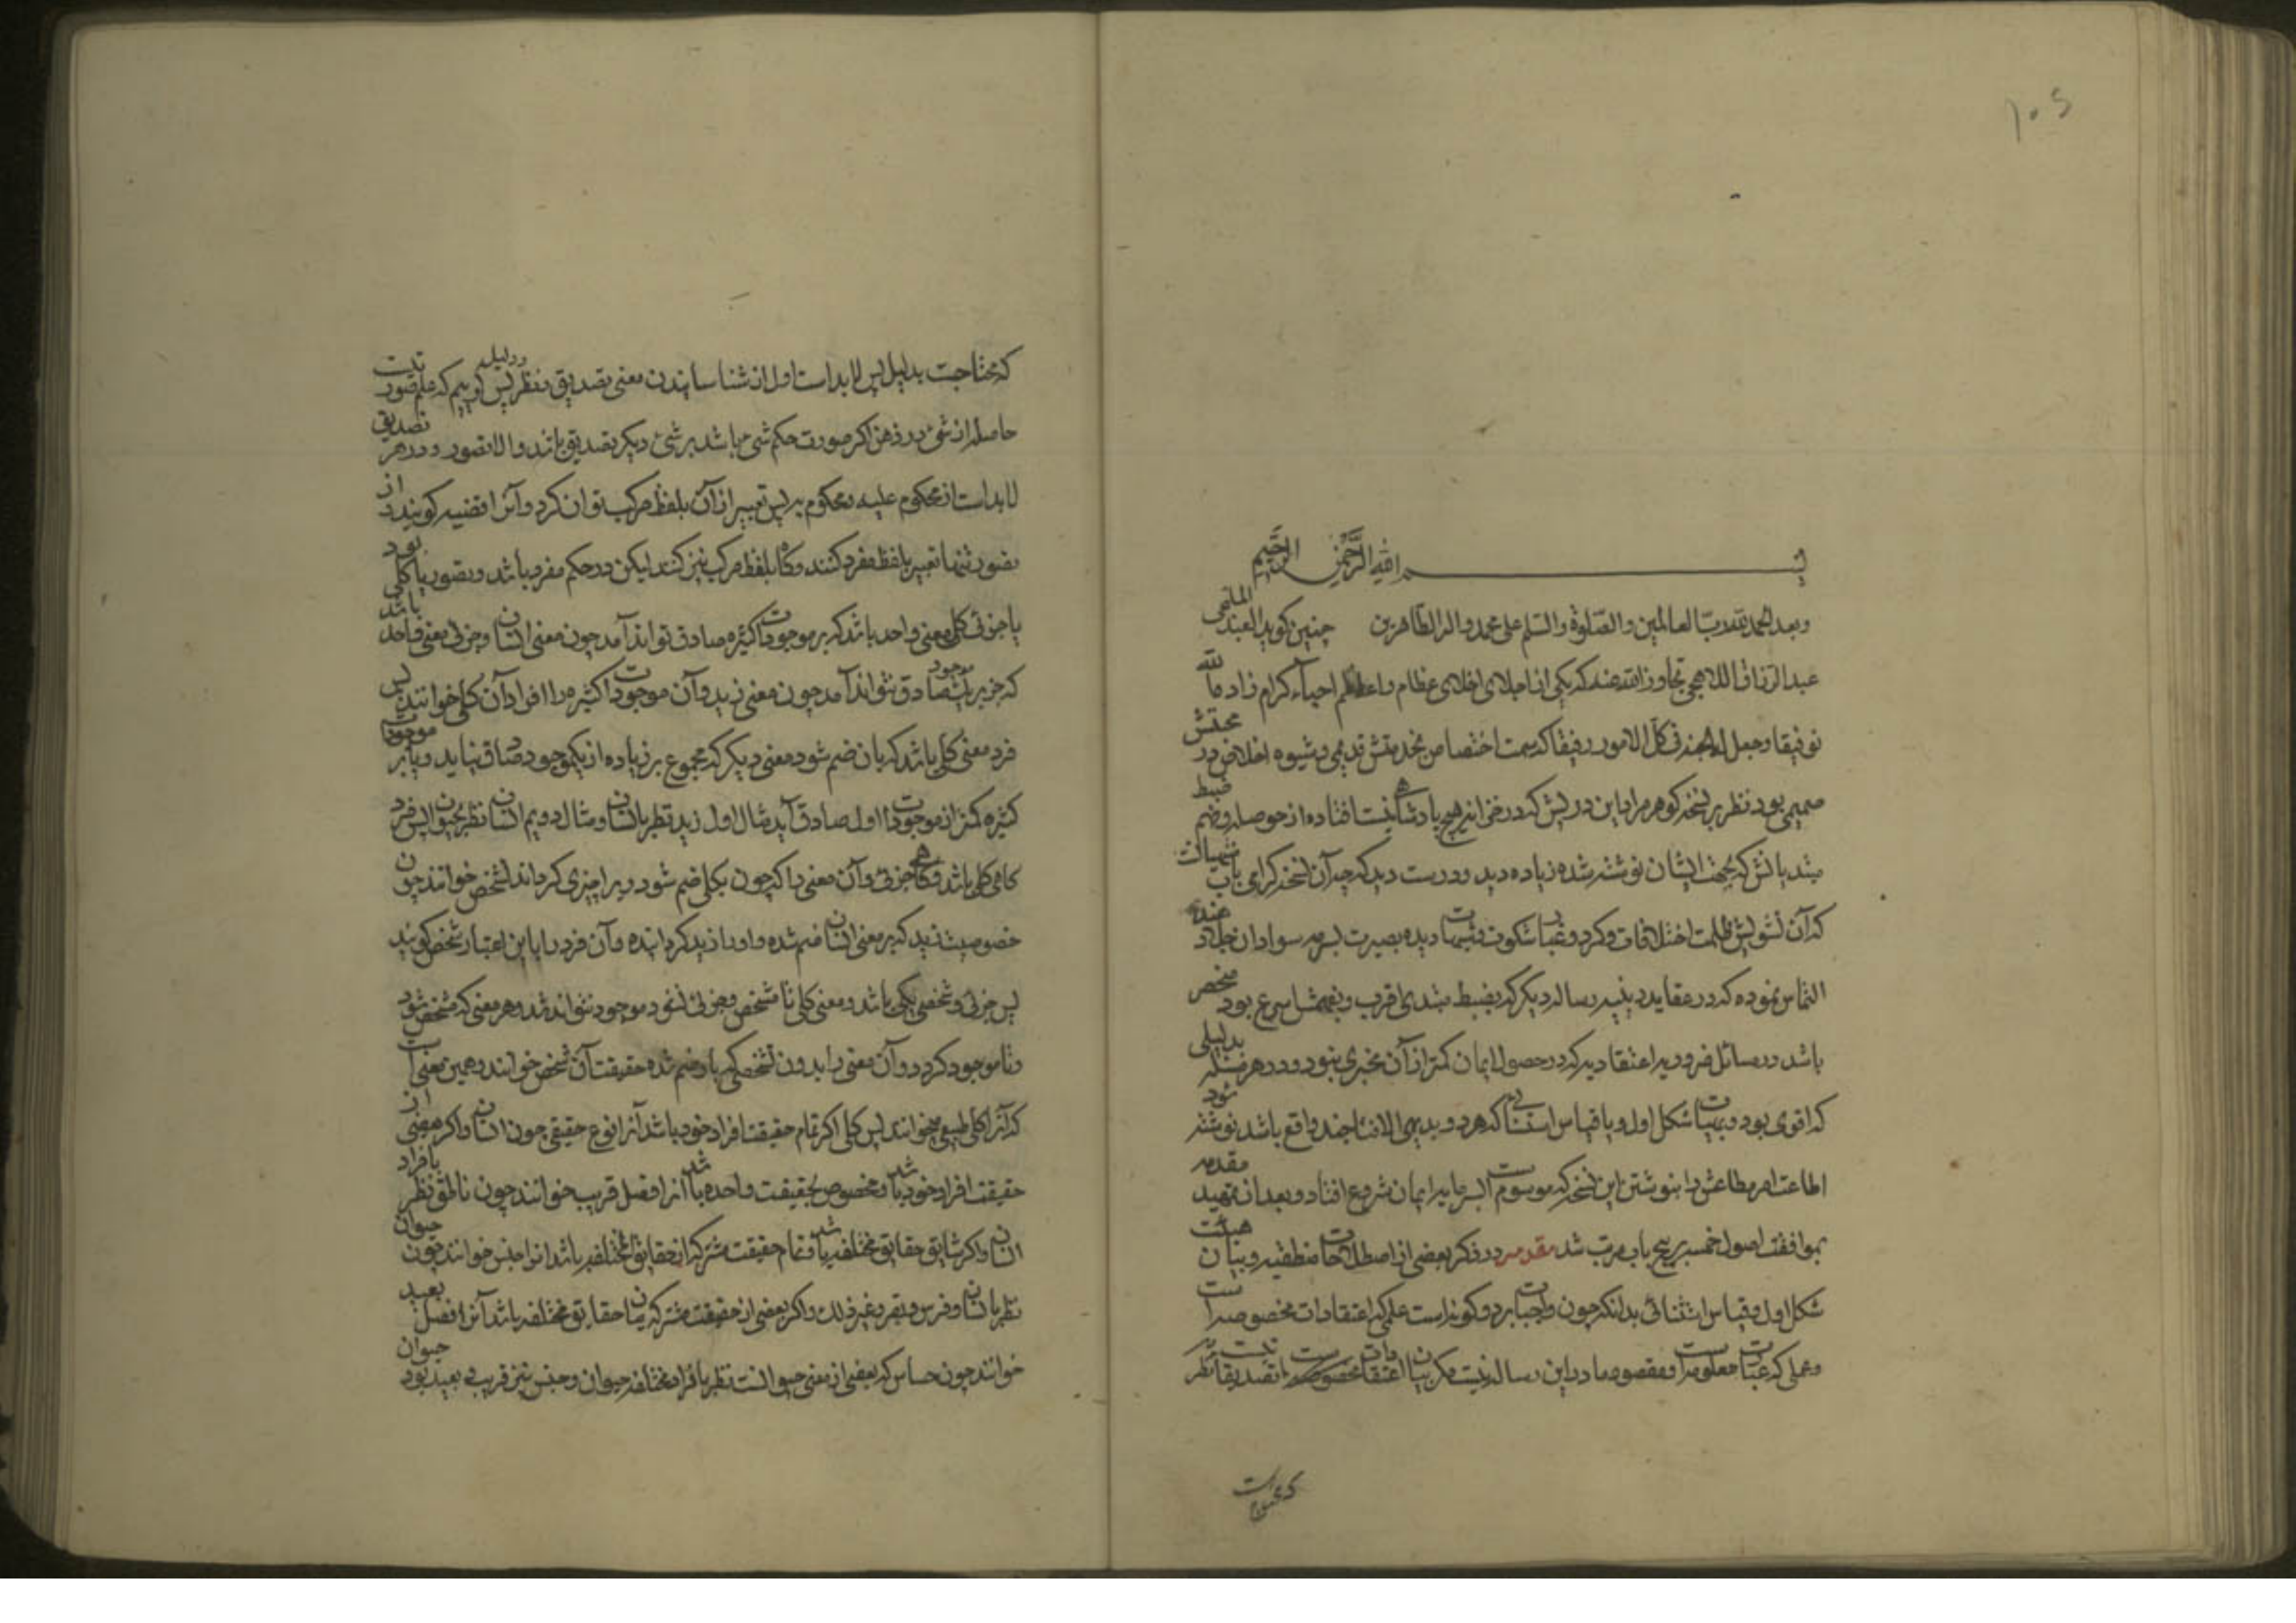 ۱۰۵
بسم الله الرحمن الرحیم
وبعد الحمد لله رب العالمین والصلوة والسلم علی محمد واله الطاهرین چنین کوید العبد الملتجی
عبد الرزاق اللاهجی تجاوز الله عنه که یکی از اجلای اخلای عظام واعاظم احباء کرام زاده الله
توفیقا وجعل له الجنه فی کل الامور رفیقا که سمت اختصاص بخدمتش قدیمی وشیوه اخلاص در محبتش
صمیمی بود نظر بر نسخه کوهر مراد این درویش که در خزانه هیچ پادشاهی نیست افتاده از حوصله وضم ضبط
مبتدیانش که بجهت ایشان نوشته شده زیاده دید ودرست دید که چه آن نسخه کرامی
که آن تشویش ظلمت اختلافات وکرد وغبار شکوک وشبهات دیده بصیرت بسرمه سواد آن جلا داد
التماس نموده که در عقاید دینیه رساله دیکر که بضبط مبتدی اقرب وبفهمش اسرع بود مختصر
باشد در مسائل ضروریه اعتقادیه که در حصول ایمان کمتر از آن مجزی نبود ودر هر مسئله بدلیلی
که اقوی بود وبهیات شکل اول ویا قیاس استثنایی که هر دو بدیهی الانتاجند واقع باشد نوشته شود
اطاعت امر مطاعش را بنوشتن این نسخه که موسوم است بسرمایه ایمان شروع افتاد وبعد از تمهید مقدمه
بموافقت اصول خمسه بر پنج باب مرتب شد مقدمه در ذکر بعضی از اصطلاحات منطقیه وبیان هیئت
شکل اول وقیاس استثنائی بدانکه چون واجبات بر دو کونه است علمی که اعتقادات مخصوصه است
وعملی که عبادات معلومه است ومقصود ما در این رساله نیست مکر بیان اعتقادات مخصوصه است تصدیقات نظریه
که عبارتست
که محتاجست بدلیل پس لابد است اول از شناسانیدن معنی تصدیق ونظر ودلیل پس کوییم که علم صورتیست
حاصله از شیء در ذهن اکر صورت حکم شیء باشد بر شیء دیکر تصدیق باشد والا تصور ودر هر تصدیق
لابد است از محکوم علیه ومحکوم به پس تعبیر از آن بلفظ مرکب توان کرد وآنرا قضیه کویند واز
تصور تنها تعبیر بلفظ مفرد کنند وکاه بلفظ مرکب نیز کنند لیکن در حکم مفرد باشد وتصور یا کلی بود
یا جزئی کلی معنی واحد باشد که بر موجودات کثیره صادق تواند آمد چون معنی انسان وجزئی معنی واحد باشد
که جز بر یک موجود صادق نتواند آمد چون معنی زید وآن موجودات کثیره را افراد آن کلی خوانند پس
فرد معنی کلی باشد که بان ضم شود معنی دیکر که مجموع بر زیاده از یکموجود صادق نیاید ویا بر موجودات
کثیره کمتر از موجودات اول صادق آید مثال اول زید نظر بانسان ومثال دویم انسان نظر بحیوان پس فرد
کاهی کلی باشد وکاهی جزئی وآن معنی را که چون بکلی ضم شود ویرا جزئی کرداند تشخص خوانند چون
خصوصیت زید که بر معنی انسان ضم شده واورا زید کردانیده وآن فرد را باین اعتبار شخص کویند
پس جزئی وشخص یکی باشد ومعنی کلی تا مشخص وجزئی نشود موجود نتواند شد وهر معنی که مشخص شود
وتا موجود کردد وآن معنی را بدون تشخصی که باو ضم شده حقیقت آن شخص خوانند وهمین معنی است
که آنرا کلی طبیعی میخوانند پس کلی اکر تمام حقیقت افراد خود باشد آنرا نوع حقیقی چون انسان واکر بعضی از
حقیقت افراد خود باشد ومخصوص بحقیقت واحده باشد آنرا فصل قریب خوانند چون ناطق نظر بافراد
انسان واکر شایع حقایق مختلفه باشد وتمام حقیقت مشترکه آن حقایق مختلفه باشد انرا جنس خوانند چون حیوان
نظر بانسان وفرس وبقر وغیر ذلک واکر بعضی از حقیقت مشترکه میان حقایق مختلفه باشد آنرا فصل بعید
خوانند چون حساس که بعضی از معنی حیوانست نظر بافراد مختلفه حیوان وجنس نیز قریب وبعید بود حیوان